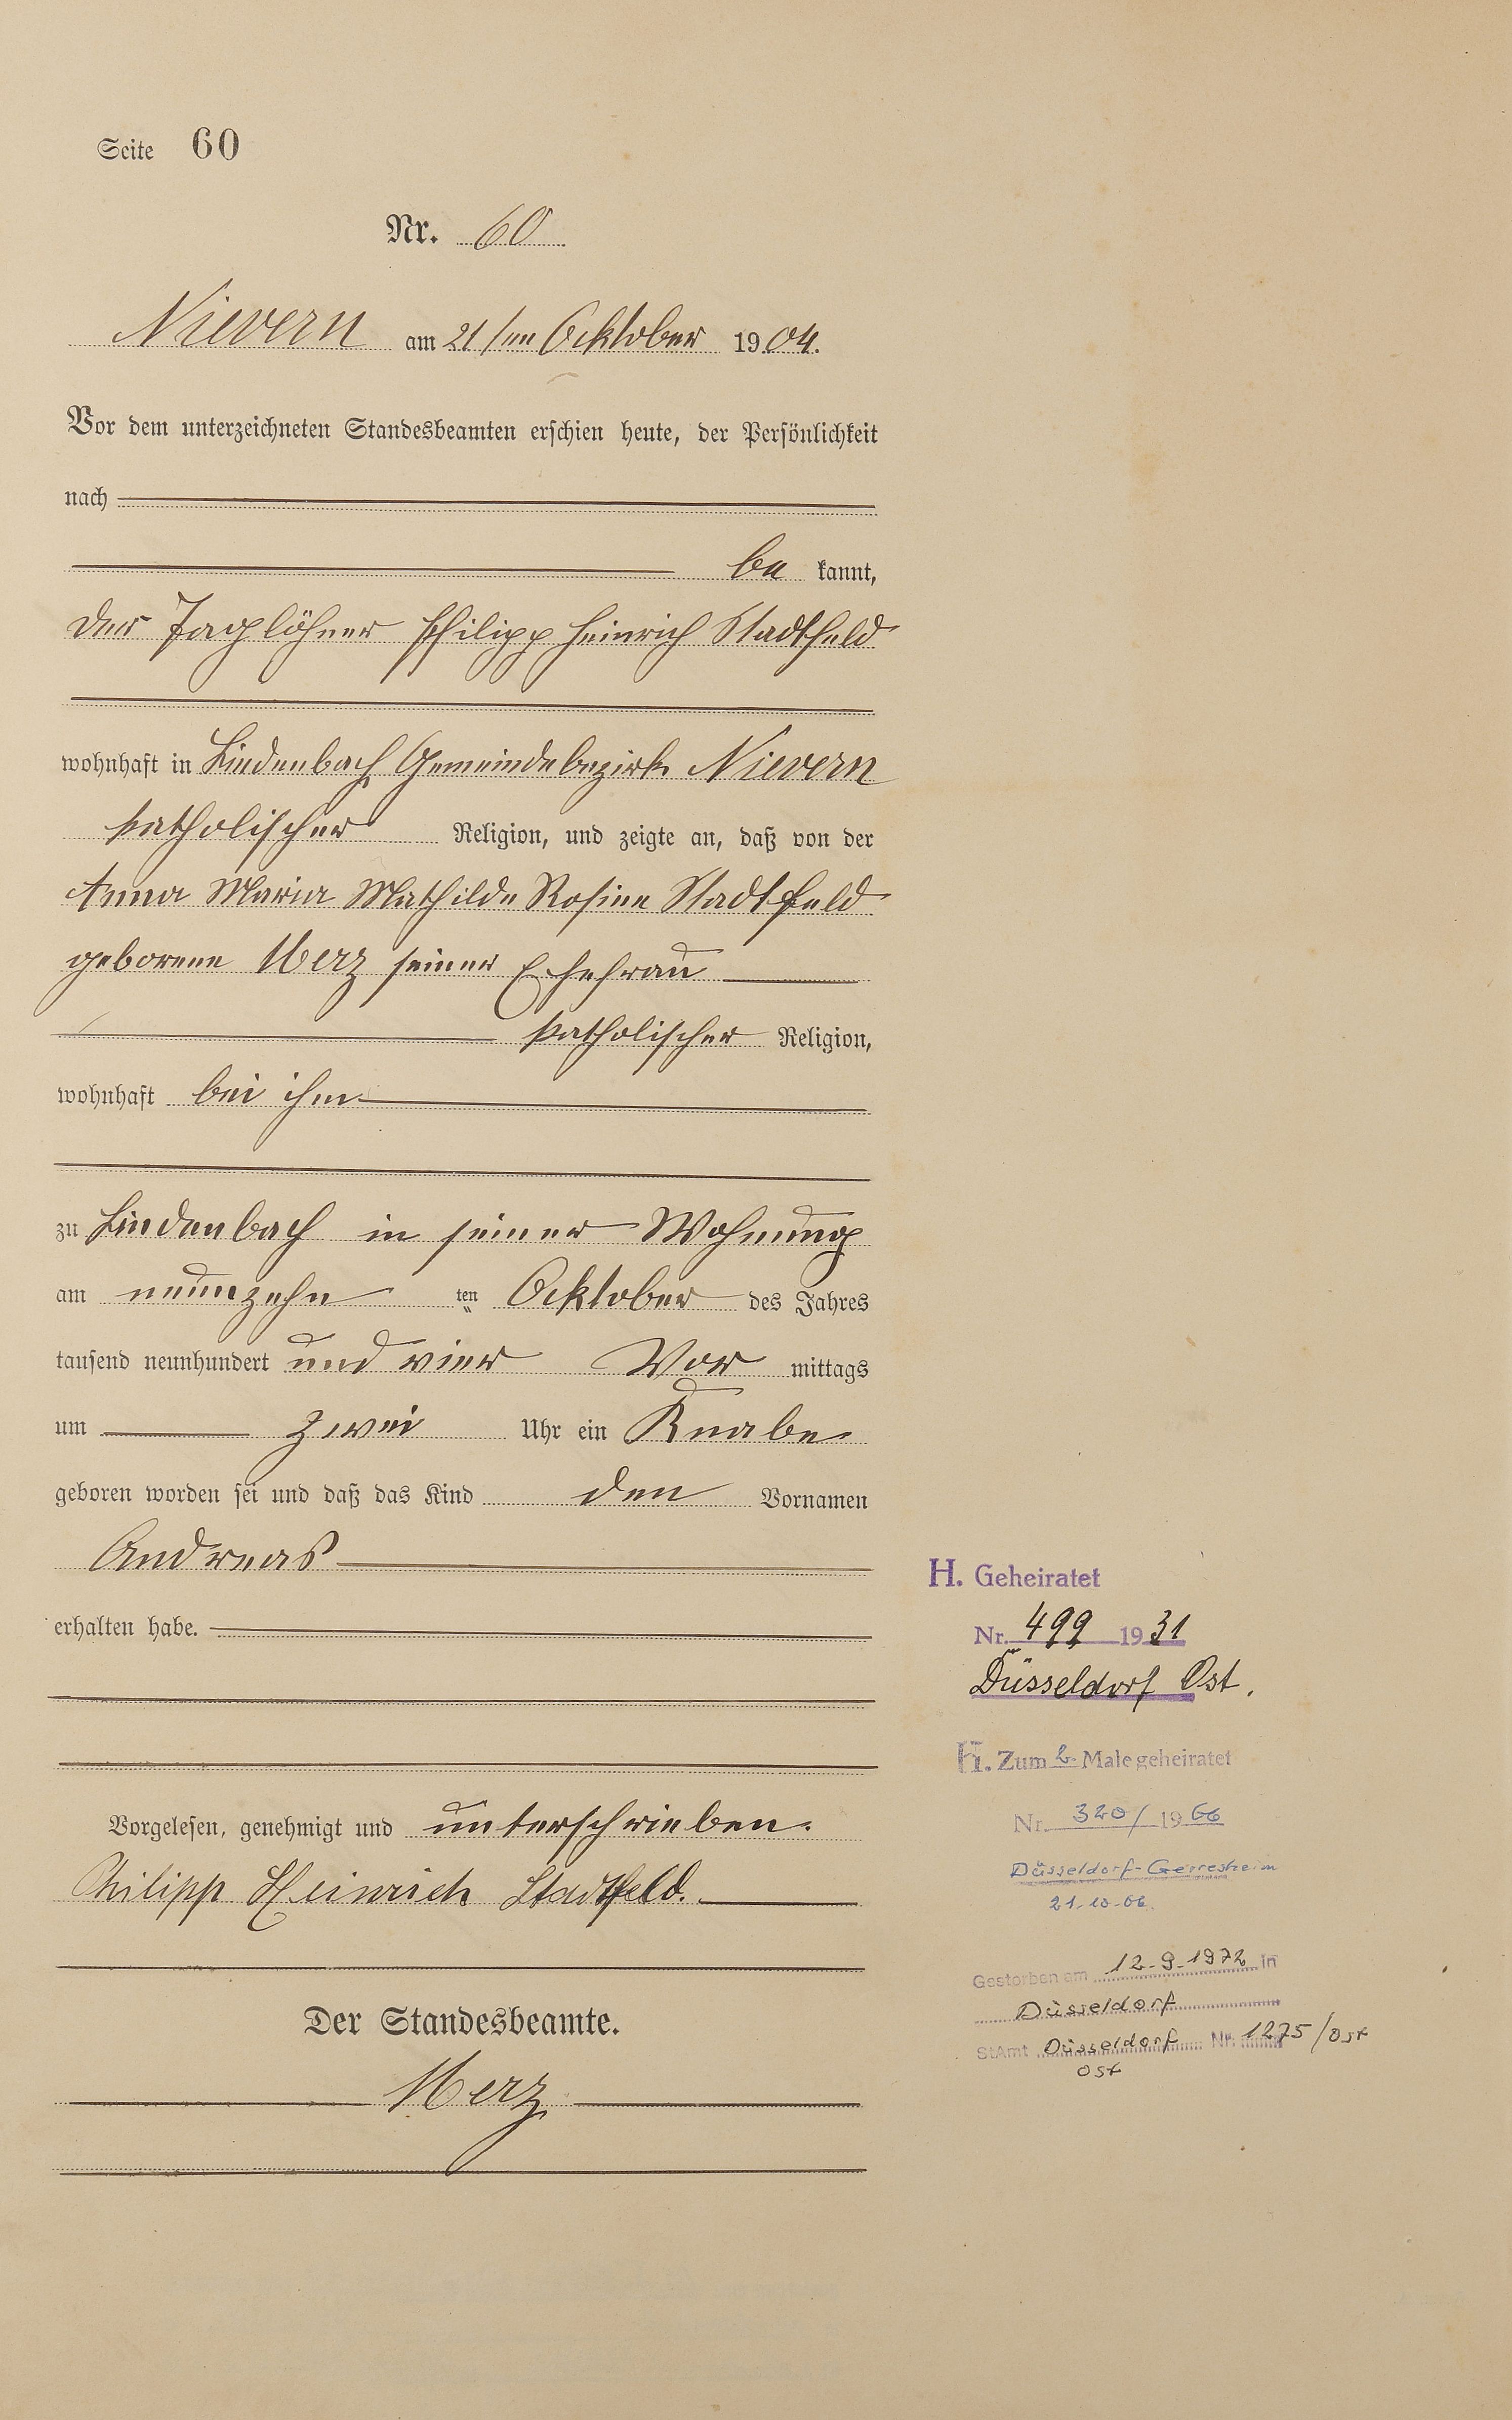 Seite 60
Nr. 60
Nievern am 21ten Ocktober 1904.
Vor dem unterzeichneten Standesbeamten erschien heute, der Persönlichkeit
nach
be kannt,
der Taglöhner Philipp Heinrich Stadtfeld
wohnhaft in Lindenbach Gemeindebezirk Nievern
katholischer Religion, und zeigte an, daß von der
Anna Maria Mathilde Rosine Stadtfeld
geborene Merz seiner Ehefrau
katholischer Religion,
wohnhaft bei ihm
zu Lindenbach in seiner Wohnung
am neunzehn ten Ocktober des Jahres
tausend neunhundert und vier Vor mittags
um zwei Uhr ein Knabe
geboren worden sei und daß das Kind den Vornamen
Andreas
erhalten habe.
Vorgelesen, genehmigt und unterschrieben.
Philipp Heinrich Stadtfeld.
Der Standesbeamte.
Merz
H. Geheiratet
Nr. 499 1931
Düsseldorf Ost.
H. Zum 2. Male geheiratet
Nr. 320/ 1966
Düsseldorf-Gerresheim
21.10.66.
Gestorben am 12.9.1972 in
Düsseldorf
StAmt Düsseldorf Nr. 1275/Ost
Ost